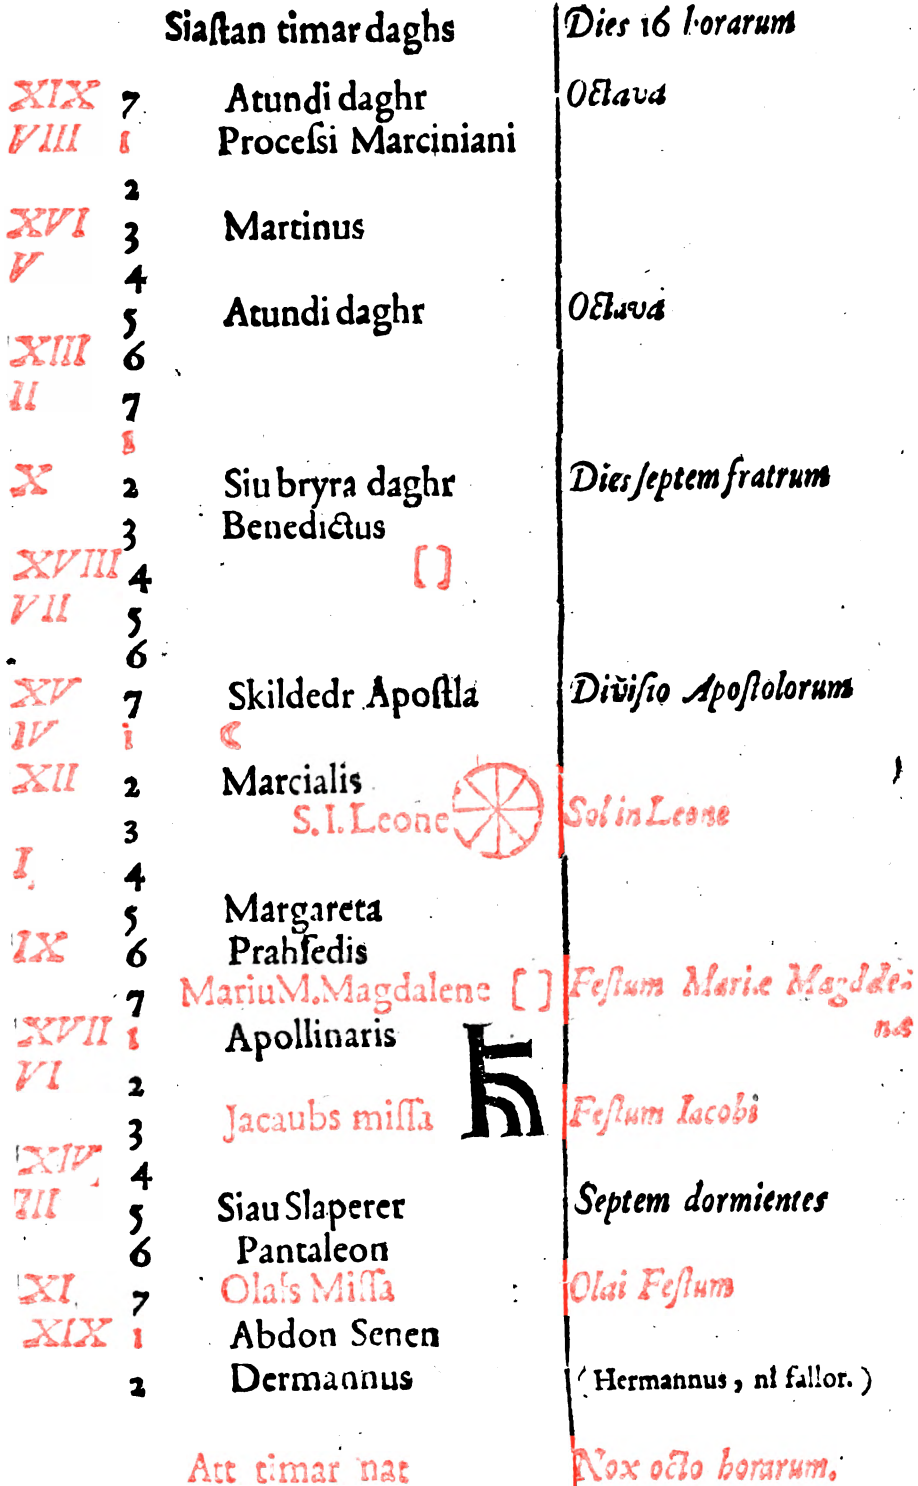 Siaſtan timar daghs Dies 16 horarum
XIX 7 Atundi daghr Octava
VIII 1 Proceſsi Marciniani
2
XVI 3 Martinus
V 4
5 Atundi daghr Octava
XIII 6
II 7
1
X 2 Siu bryra daghr Dies ſeptem fratrum
3 Benedictus
XVIII 4 []
VII 5
6
XV 7 Skildedr Apoſtla Diviſio Apoſtolorum
IV 1 ☾
XII 2 Marcialis
3 S. I. Leone Sol in Leone
I 4
5 Margareta
IX 6 Prahſedis
7 MariuM. Magdalene [] Feſtum Mariæ Magdale-
næ
XVII 1 Apollinaris
VI 2
3 Jacaubs miſſa Feſtum Iacobi
XIV 4
III 5 Siau Slaperer Septem dormientes
6 Pantaleon
XI 7 Olafs Miſſa Olai Feſtum
XIX 1 Abdon Senen
2 Dermannus (Hermannus, ni fallor.)
Att timar nat Nox octo horarum.